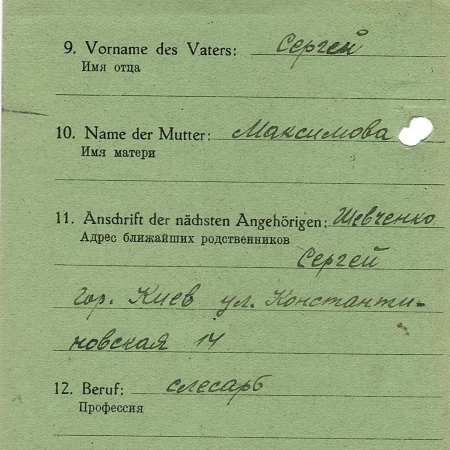 9. Vorname des Vaters: Сергей
Имя отца
10. Name der Mutter: Максимова
Имя матери
11. Anschrift der nächsten Angehörigen: Шевченко
Адрес ближайших родственников
Сергей
гор. Киев ул. Константи-
новская 14
12. Beruf: слесарь
Профессия